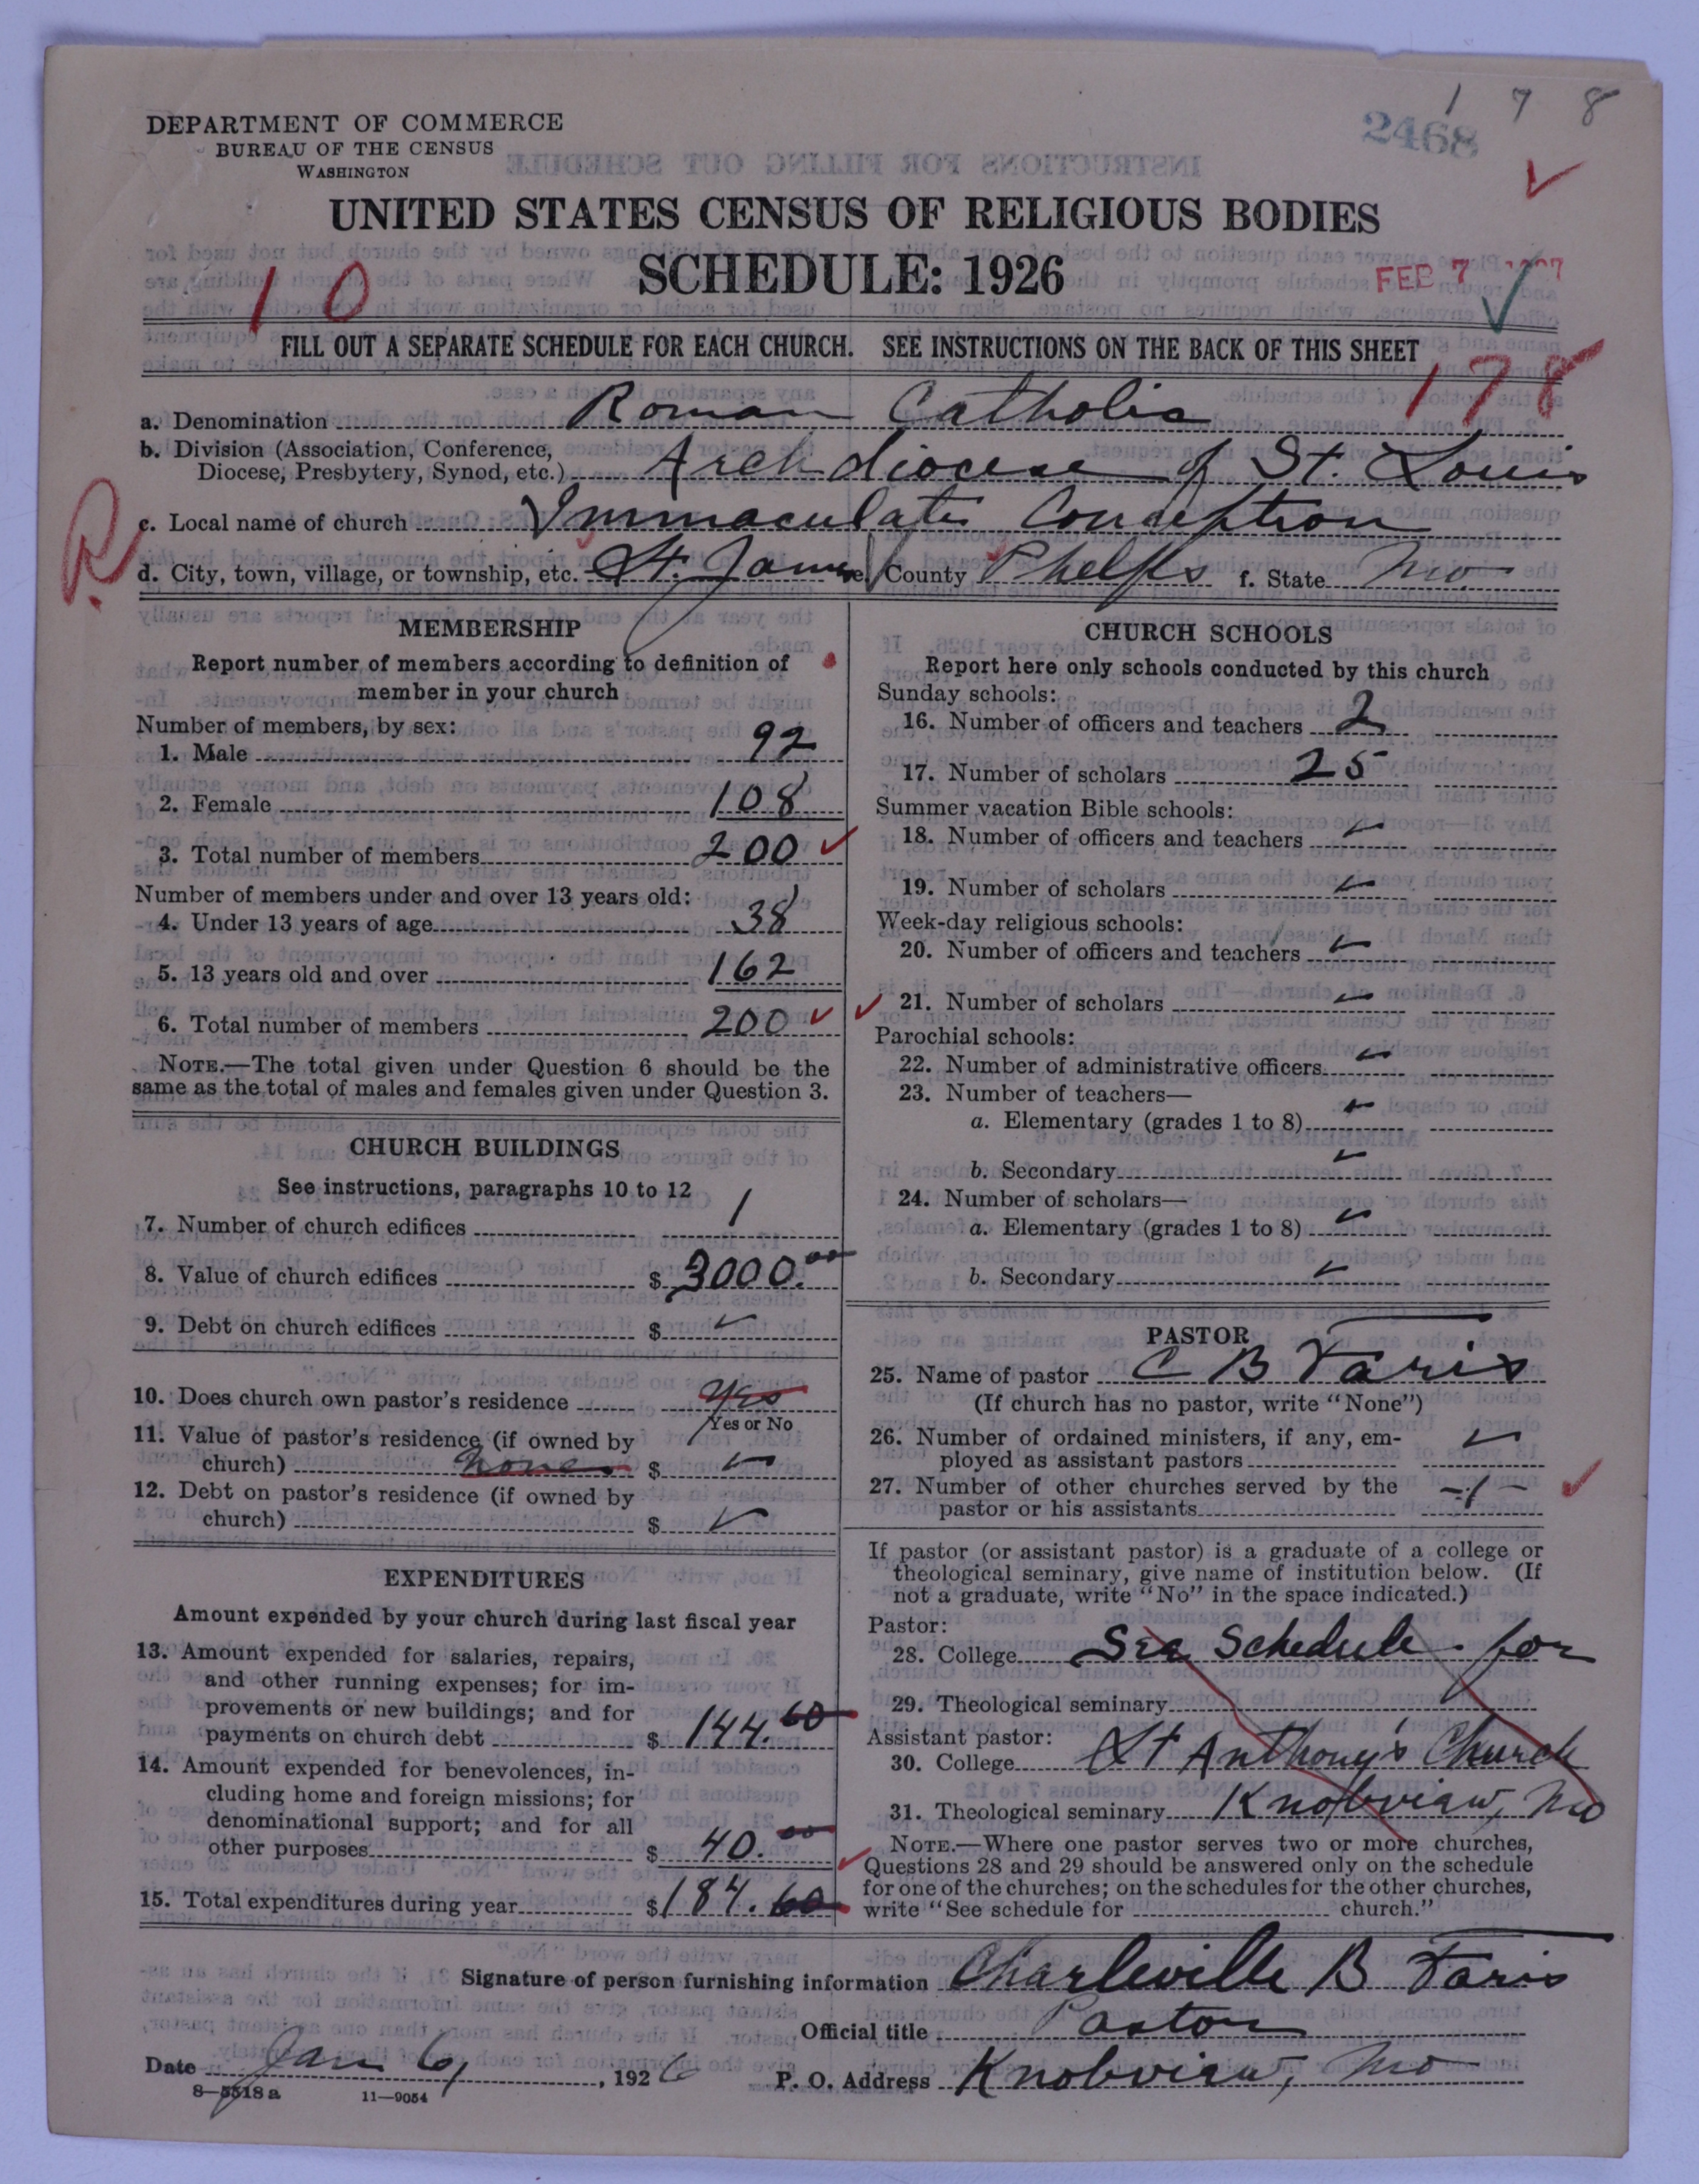 1 7 8
DEPARTMENT OF COMMERCE
BUREAU OF THE CENSUS
WASHINGTON
2468
UNITED STATES CENSUS OF RELIGIOUS BODIES
SCHEDULE: 1926
FEB 7 1927
10
FILL OUT A SEPARATE SCHEDULE FOR EACH CHURCH. SEE INSTRUCTIONS ON THE BACK OF THIS SHEET
178
a. Denomination Roman Catholic
b. Division (Association, Conference,
Diocese, Presbytery, Synod, etc.) Archdiocese of St. Louis
R
c. Local name of church Immaculate Conception
d. City, town, village, or township, etc. St. James e. County Phelps f. State Mo
MEMBERSHIP
Report number of members according to definition of
member in your church
Number of members, by sex:
1. Male 92
2. Female 108
3. Total number of members 200
Number of members under and over 13 years old:
4. Under 13 years of age 38
5. 13 years old and over 162
6. Total number of members 200
NOTE.—The total given under Question 6 should be the
same as the total of males and females given under Question 3.
CHURCH BUILDINGS
See instructions, paragraphs 10 to 12
7. Number of church edifices 1
8. Value of church edifices $ 3000.00
9. Debt on church edifices $ ✓
10. Does church own pastor's residence Yes
Yes or No
11. Value of pastor's residence (if owned by
church) None $ ✓
12. Debt on pastor's residence (if owned by
church) $ ✓
EXPENDITURES
Amount expended by your church during last fiscal year
13. Amount expended for salaries, repairs,
and other running expenses; for im-
provements or new buildings; and for
payments on church debt $ 144.60
14. Amount expended for benevolences, in-
cluding home and foreign missions; for
denominational support; and for all
other purposes $ 40.00
15. Total expenditures during year $ 184.60
CHURCH SCHOOLS
Report here only schools conducted by this church
Sunday schools:
16. Number of officers and teachers 2
17. Number of scholars 25
Summer vacation Bible schools:
18. Number of officers and teachers ✓
19. Number of scholars ✓
Week-day religious schools:
20. Number of officers and teachers ✓
21. Number of scholars ✓
Parochial schools:
22. Number of administrative officers ✓
23. Number of teachers—
a. Elementary (grades 1 to 8) ✓
b. Secondary ✓
24. Number of scholars—
a. Elementary (grades 1 to 8) ✓
b. Secondary ✓
PASTOR
25. Name of pastor C B Faris
(If church has no pastor, write "None")
26. Number of ordained ministers, if any, em-
ployed as assistant pastors ✓
27. Number of other churches served by the
pastor or his assistants -1-
If pastor (or assistant pastor) is a graduate of a college or
theological seminary, give name of institution below. (If
not a graduate, write "No" in the space indicated.)
Pastor:
28. College See Schedule for
29. Theological seminary
Assistant pastor:
30. College St Anthony's Church
31. Theological seminary Knobview, Mo
NOTE.—Where one pastor serves two or more churches,
Questions 28 and 29 should be answered only on the schedule
for one of the churches; on the schedules for the other churches,
write "See schedule for church."
Signature of person furnishing information Charleville B Faris
Official title Pastor
Date Jan 6, 1926 P. O. Address Knobview, Mo
8—5518 a 11—9054